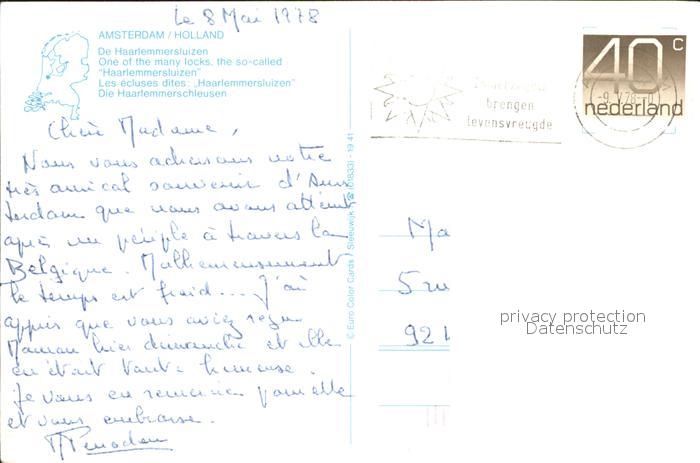 Le 8 Mai 1978
AMSTERDAM / HOLLAND
De Haarlemmersluizen
One of the many locks, the so-called
"Haarlemmersluizen"
Les écluses dites: „Haarlemmersluizen"
Die Haarlemmerschleusen
Chère Madame,
Nous vous adressons notre
très amical souvenir d'Ams
terdam que nous avons atteint
après un périple à travers la
Belgique. Malheureusement
le temps est froid... J'ai
appris que vous aviez reçu
Maman hier dimanche et elle
en était toute heureuse.
Je vous en remercie pour elle
et vous embrasse.
© Euro Color Cards / Sleeuwijk ☎ (01833) - 19 41
40 c
nederland
brengen
levensvreugde
Ma
5 ru
92
privacy protection
Datenschutz